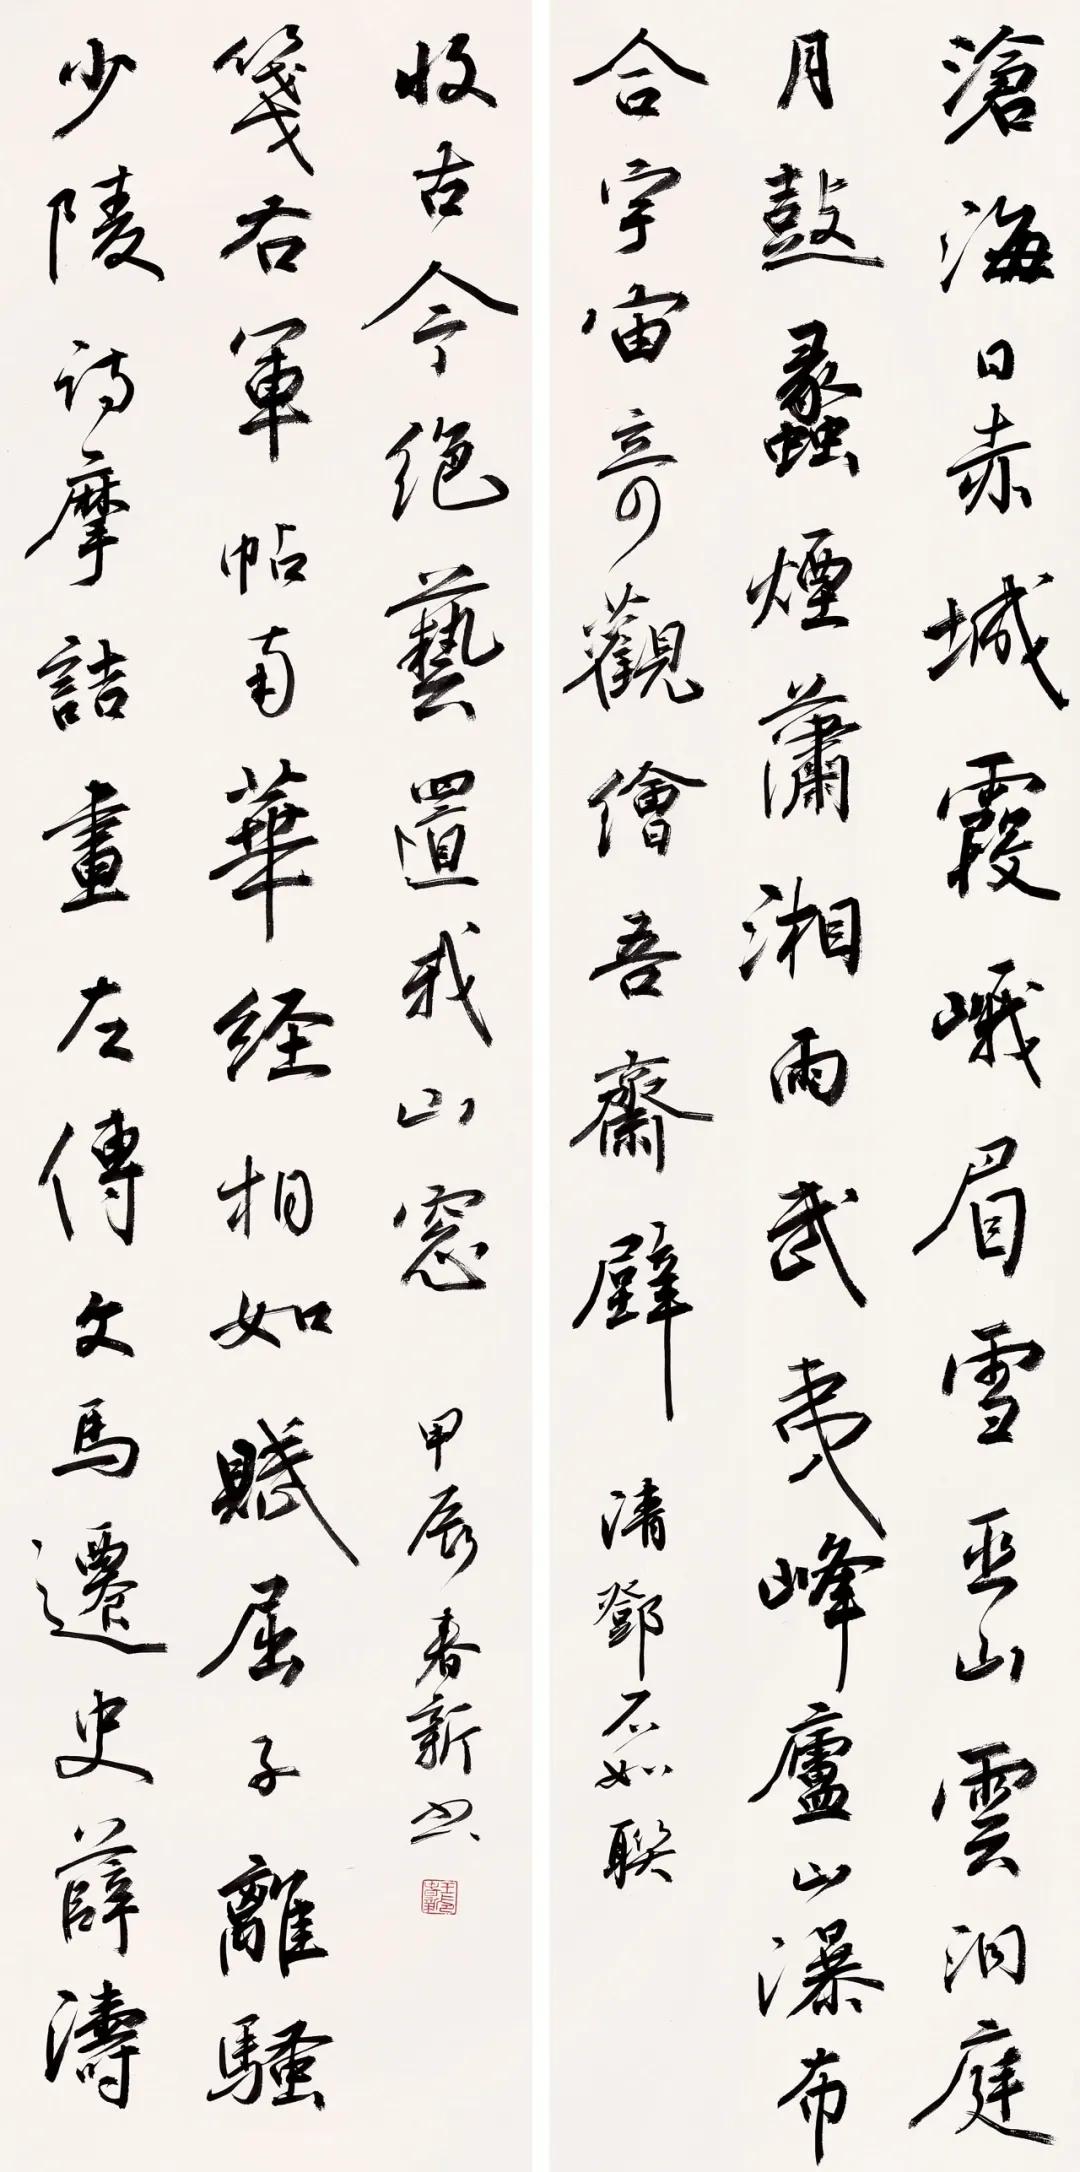 滄海日赤城霞峨眉雪巫山雲洞庭
月鼓蠡煙瀟湘雨武夷峰廬山瀑布
合宇宙奇觀繪吾齋壁
清鄧石如聯
少陵詩摩詰畫左傳文馬遷史薛濤
箋右軍帖南華經相如賦屈子離騷
收古今絕藝置我山窓
甲辰春新書